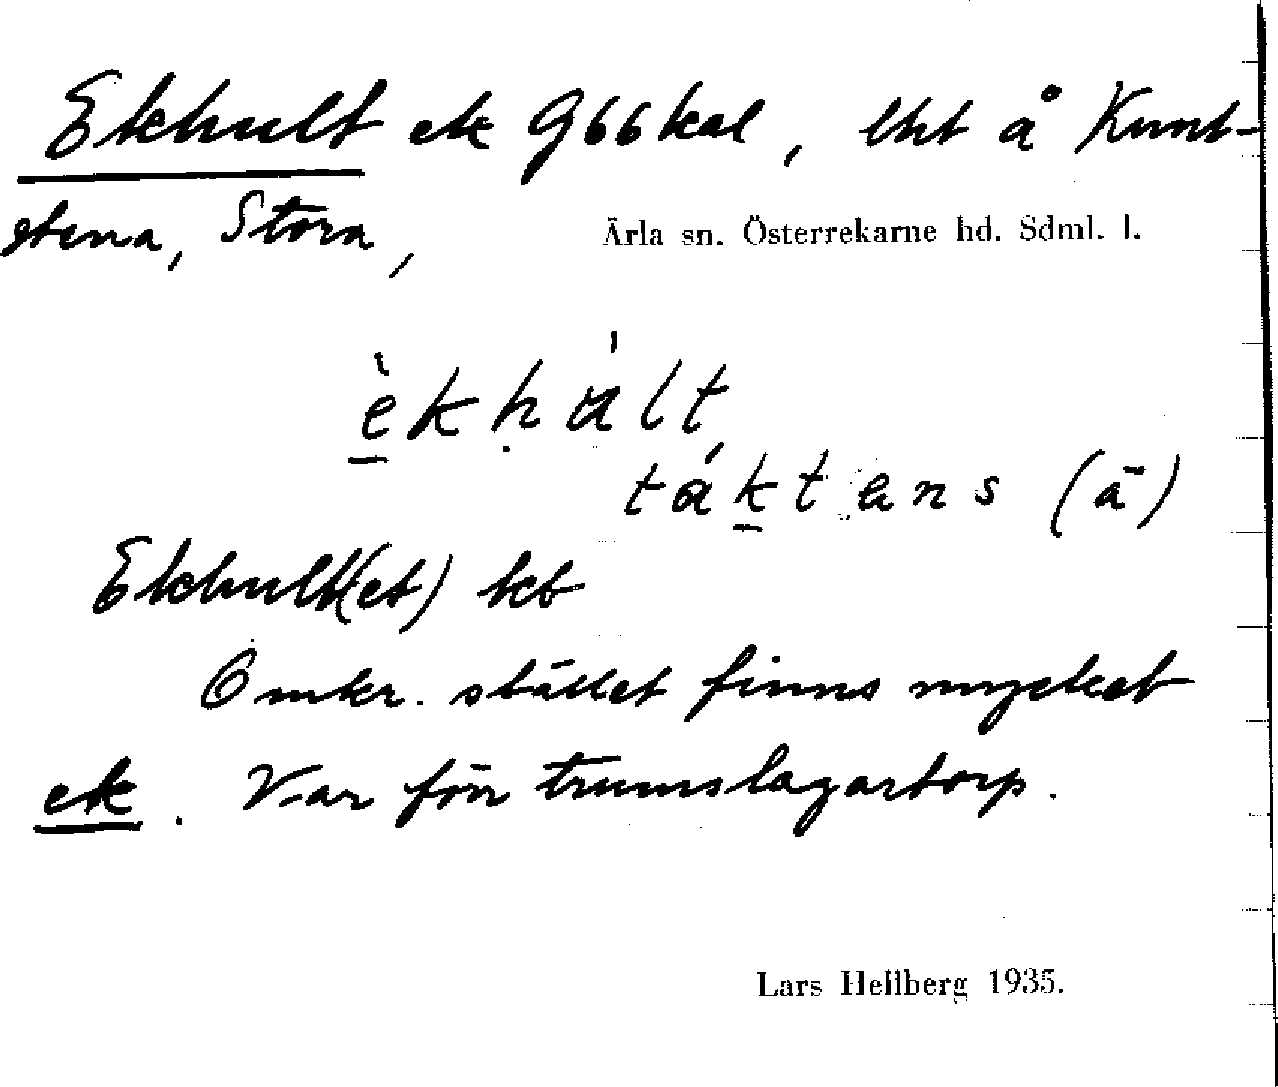 Ekhult ek G66kal, lht å Kunt-
stena, Stora,
Ärla sn. Österrekarne hd. Sdml. l.
èkhált
táktens (ā)
Ekhult(et) kb
Omkr. stället finns mycket
ek. Var förr trumslagartorp.
Lars Hellberg 1935.